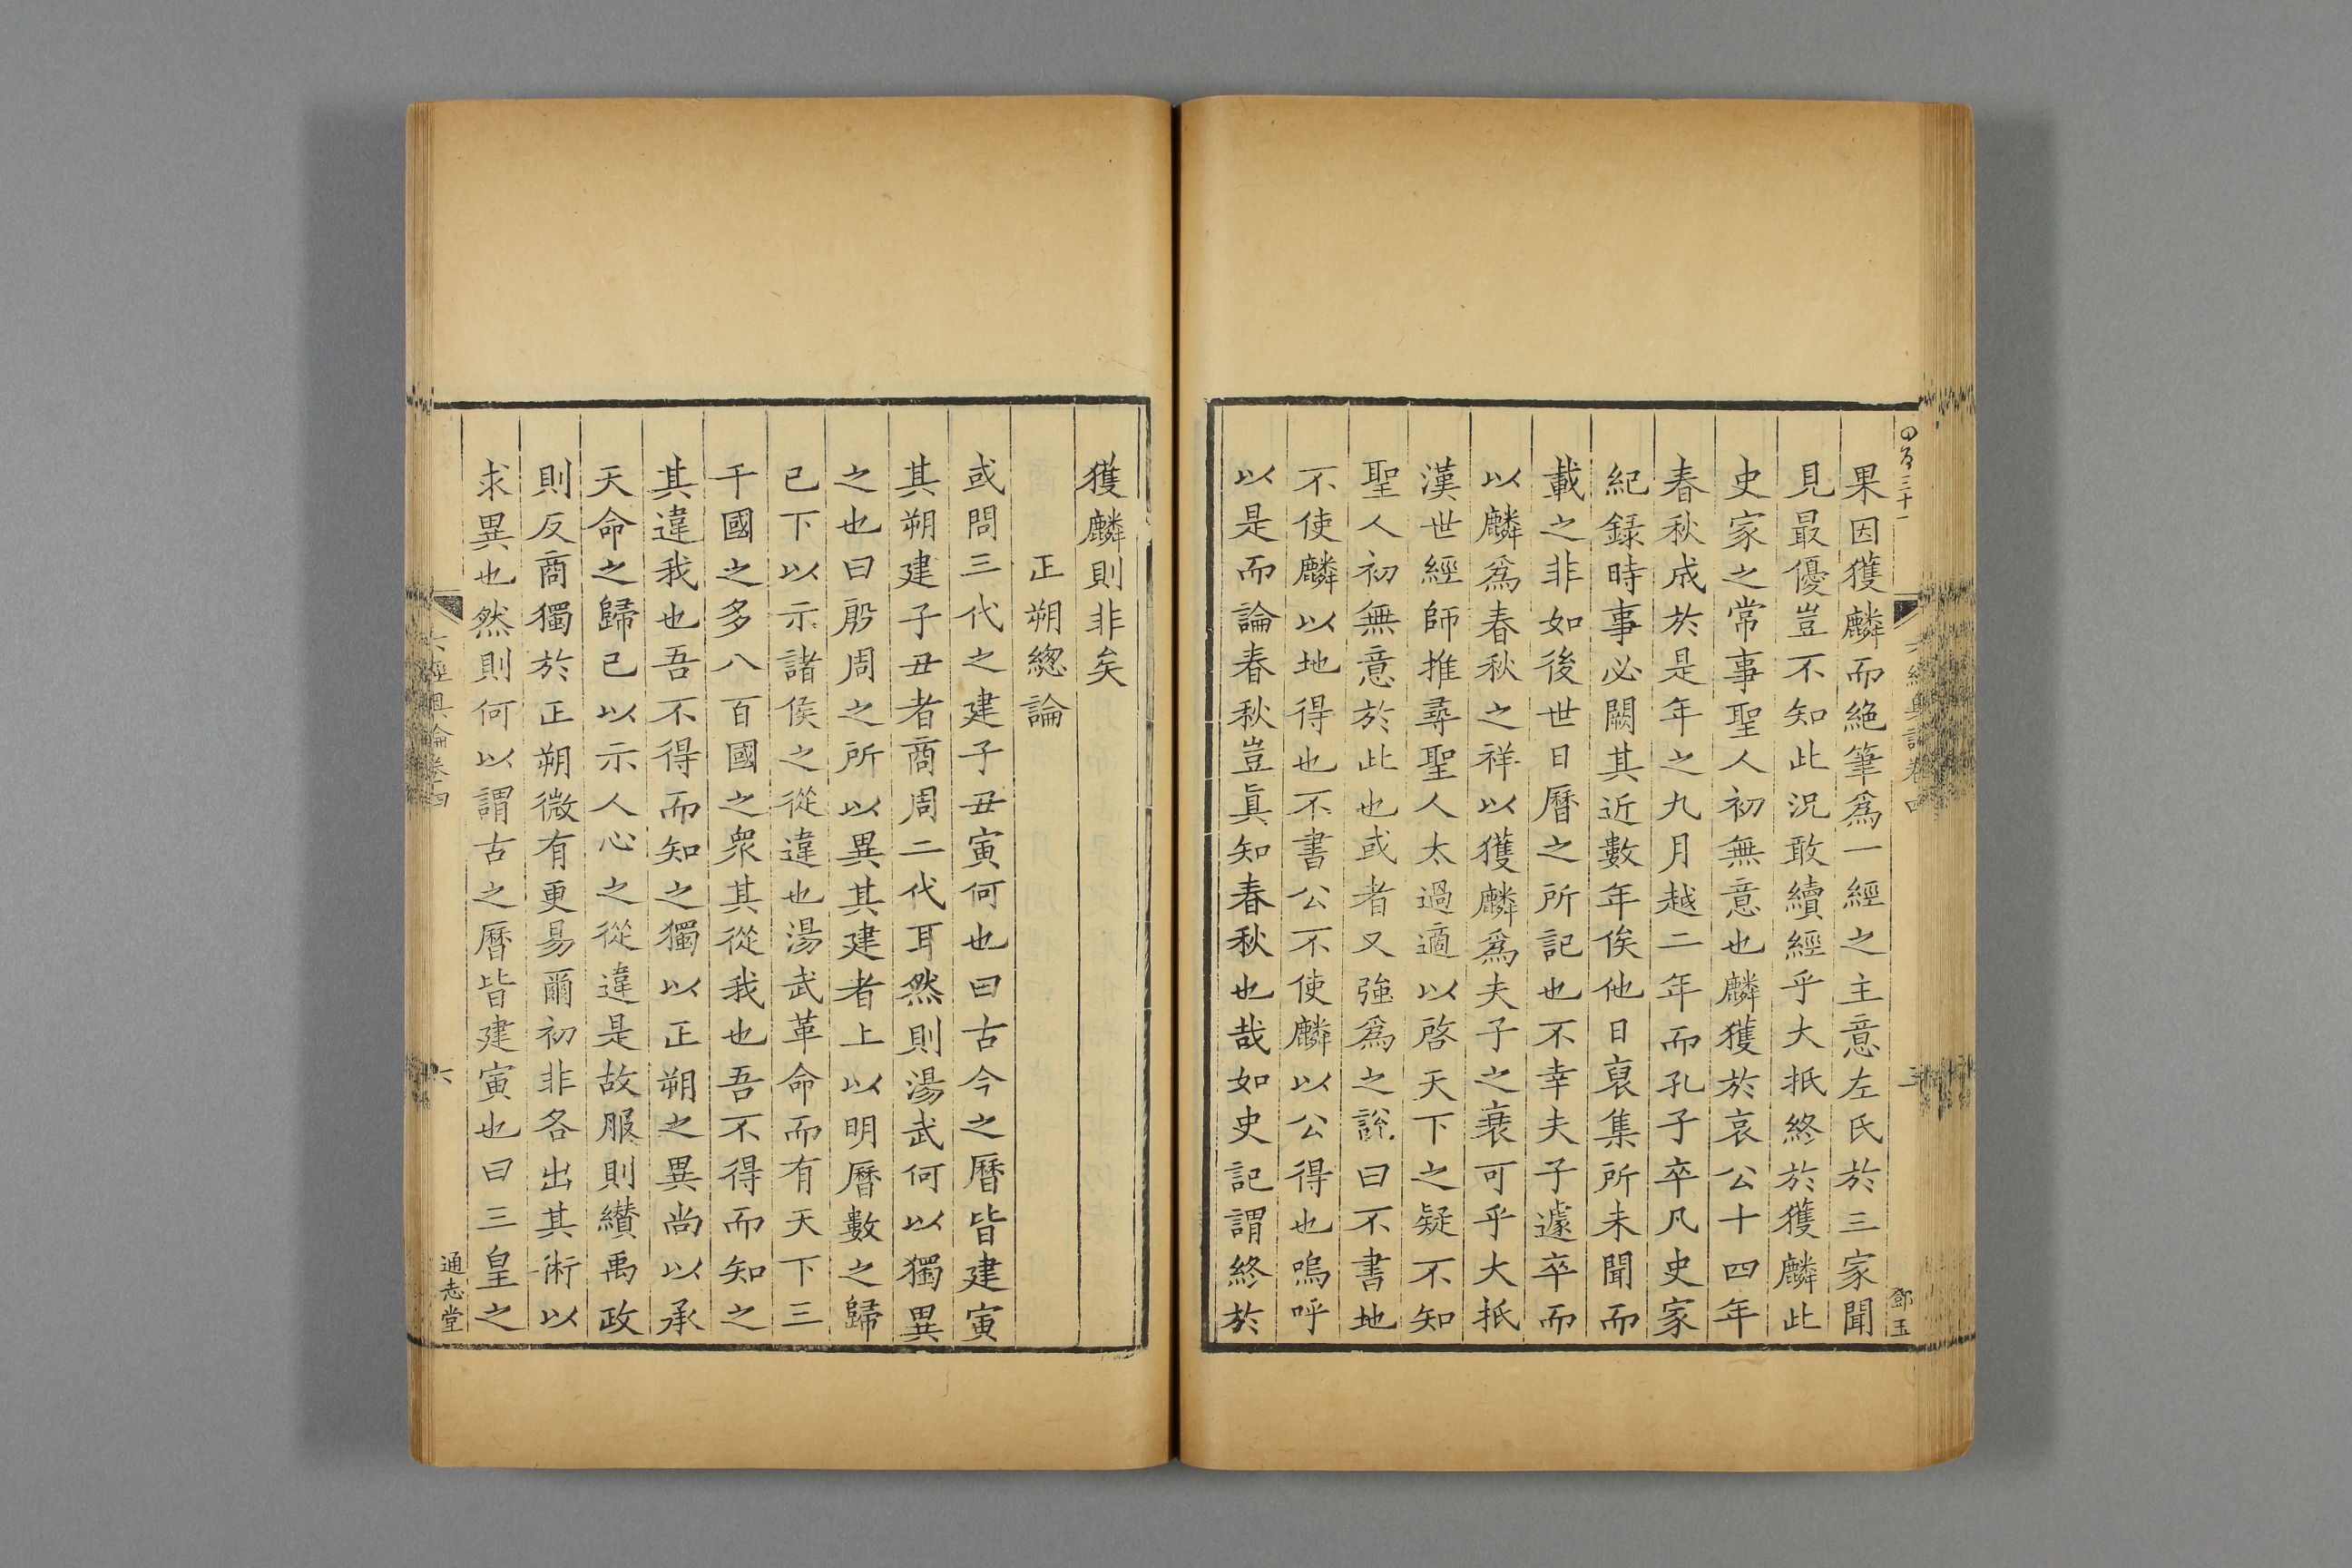 四百三十一
果因獲麟而絶筆爲一經之主意左氏於三家聞
見最優豈不知此況敢續經乎大抵終於獲麟此
史家之常事聖人初無意也麟獲於哀公十四年
春秋成於是年之九月越二年而孔子卒凡史家
紀録時事必闕其近數年俟他日裒集所未聞而
載之非如後世日曆之所記也不幸夫子遽卒而
以麟爲春秋之祥以獲麟爲夫子之衰可乎大抵
漢世經師推尋聖人太過適以啓天下之疑不知
聖人初無意於此也或者又強爲之說曰不書地
不使麟以地得也不書公不使麟以公得也嗚呼
以是而論春秋豈眞知春秋也哉如史記謂終於
鄧玉
獲麟則非矣
正朔總論
或問三代之建子丑寅何也曰古今之曆皆建寅
其朔建子丑者商周二代耳然則湯武何以獨異
之也曰殷周之所以異其建者上以明曆數之歸
已下以示諸侯之從違也湯武革命而有天下三
千國之多八百國之衆其從我也吾不得而知之
其違我也吾不得而知之獨以正朔之異尚以承
天命之歸已以示人心之從違是故服則纘禹政
則反商獨於正朔微有更易爾初非各出其術以
求異也然則何以謂古之曆皆建寅也曰三皇之
六經奧論卷四
六
通志堂